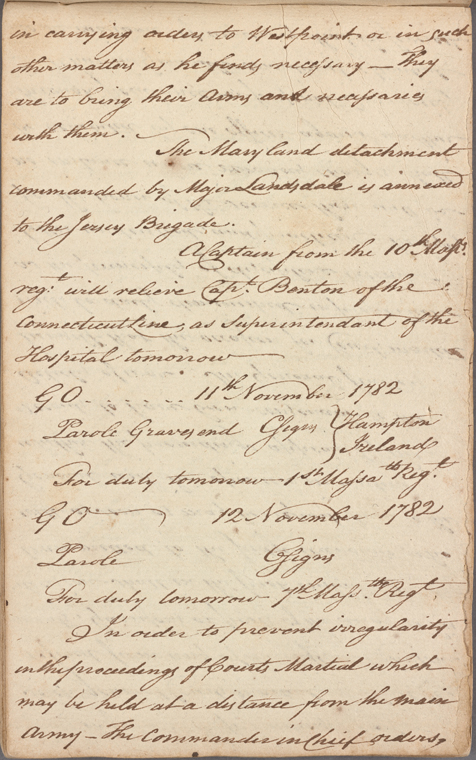 in carrying orders to Westpoint or in such
other matters as he finds necessary — They
are to bring their Arms and necessaries
with them.
The Maryland detachment
commanded by Major Landsdale is annexed
to the Jersey Brigade.
A Captain from the 10th Masts.
regt. will relieve Capt. Benton of the
Connecticut Line, as Superintendant of the
Hospital tomorrow
GO. . . . . . . 11th November 1782
Parole Gravesend CSigns { Hampton
Ireland
For duty tomorrow 1st Massats Regt.
GO 12 November 1782
Parole CSigns
For duty tomorrow 7th Massts Regt.
In order to prevent irregularity
in the proceedings of Courts Martial which
may be held at a distance from the main
Army – The Commander in Chief orders,